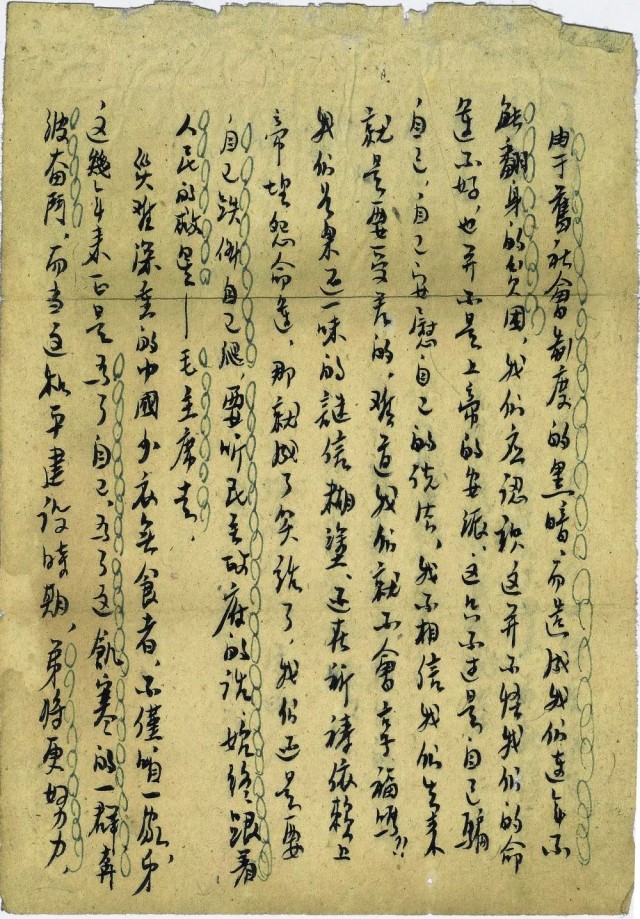 由于舊社會制度的黑暗，而造成我們連年不
能翻身的欠困，我們應認識这并不怪我們的命
運不好，也并不是上帝的安派，这只不过是自己騙
自己，自己安慰自己的说法，我不相信我們生来
就是要受苦的，难道我們就不會享福嗎？！
我們若果还一味的謎信糊塗，还在祈禱依赖上
帝埋怨命運，那就成了笑話了，我們还是要
自己跌倒自己爬，要听民主政府的说，始终跟着
人民的救星——毛主席走，
災难深重的中國少衣无食者，不僅咱一家，弟
这幾年来正是为了自己，为了这飢寒的一群奔
波奋鬥，而当这和平建设時期，弟将更努力，